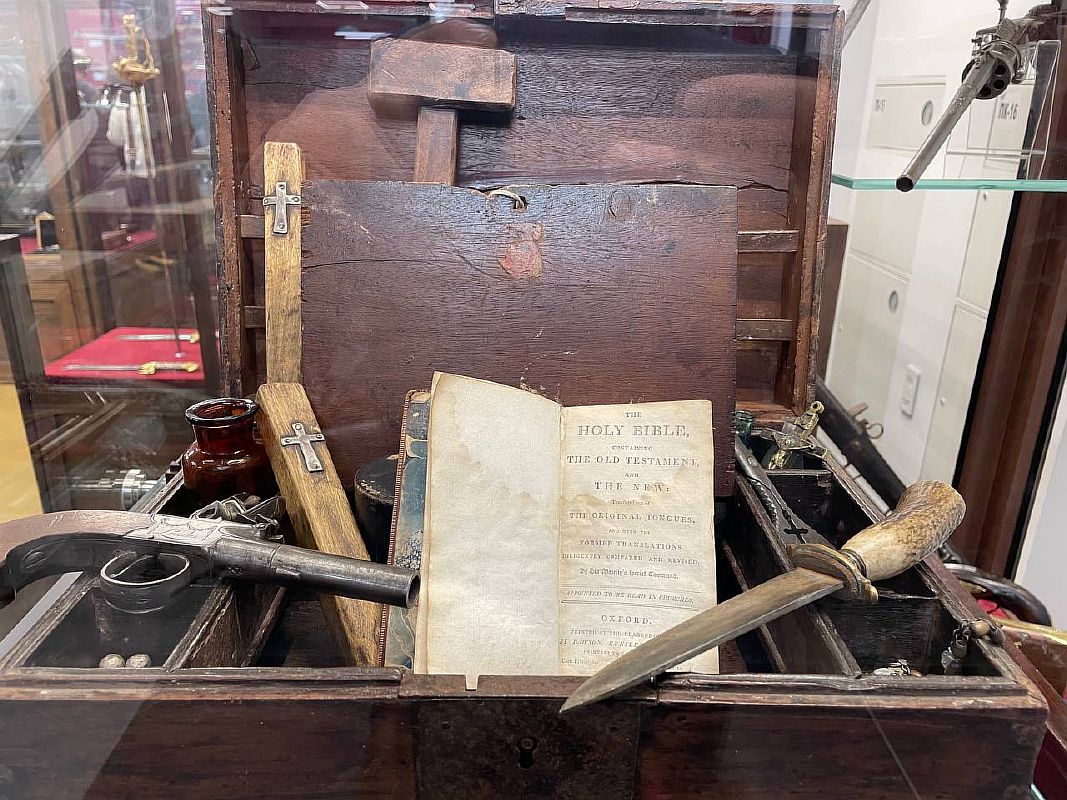 THE
HOLY BIBLE,
CONTAINING
THE OLD TESTAMENT,
AND
THE NEW:
Translated out of
THE ORIGINAL TONGUES,
AND WITH THE
FORMER TRANSLATIONS
DILIGENTLY COMPARED AND REVISED,
By His Majesty's Special Command.
APPOINTED TO BE READ IN CHURCHES.
OXFORD,
PRINTED AT THE CLARENDON
ПК-16